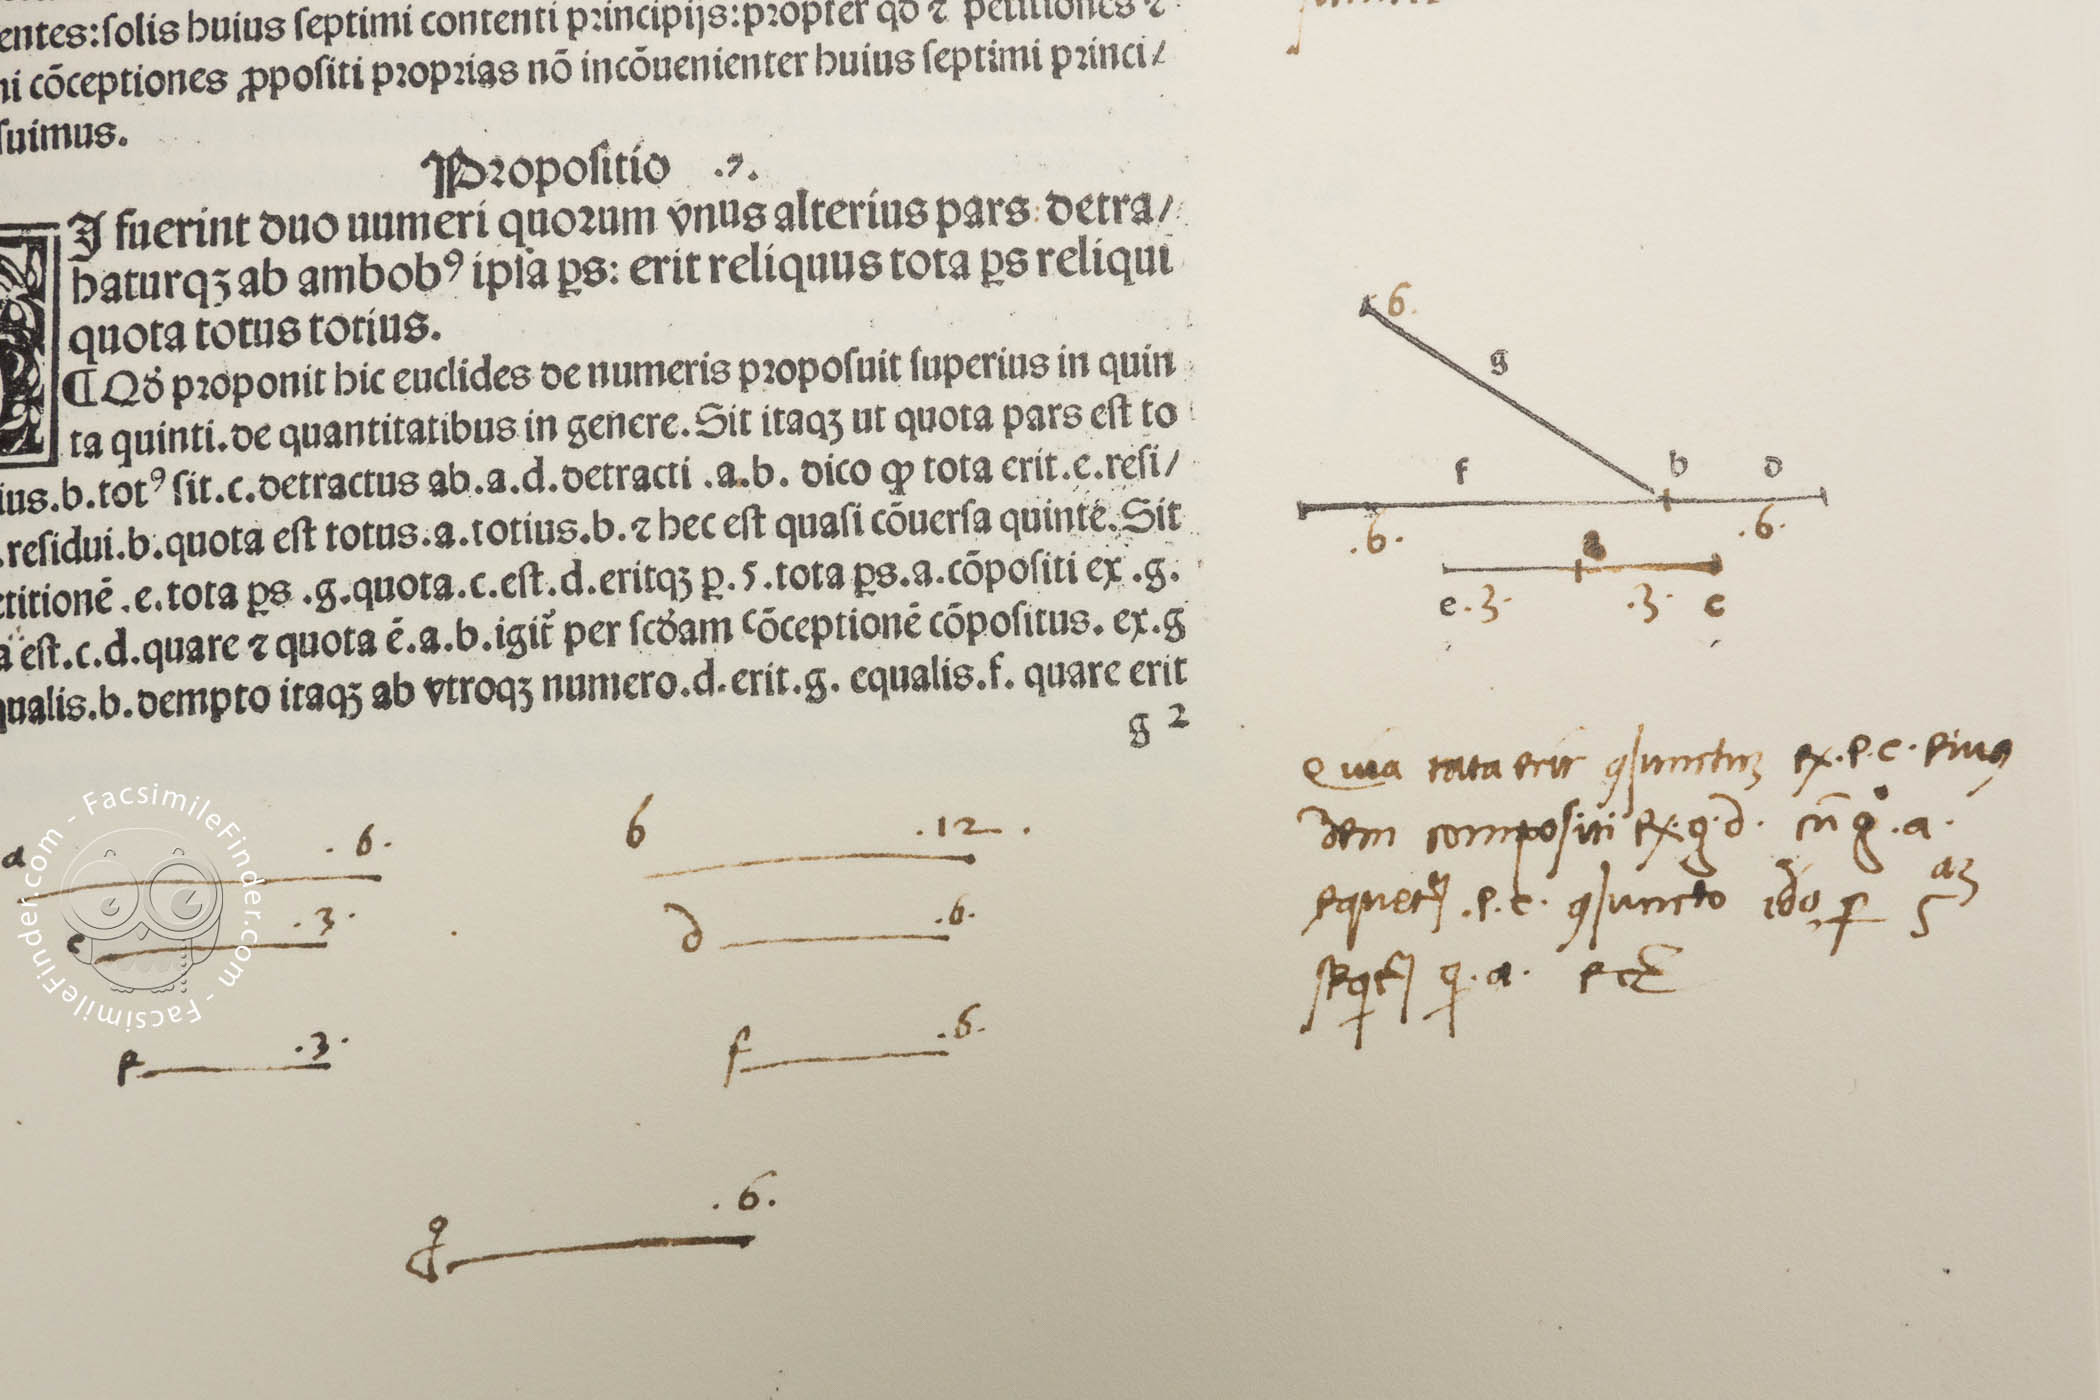 entes:ſolis huius ſeptimi contenti principijs:propter qđ ⁊ petitiones ⁊
ni cōceptiones ꝓpoſiti proprias nō incōuenienter huius ſeptimi princi/
ſuimus.
Propoſitio .7.
SI fuerint duo numeri quorum vnus alterius pars detra/
haturqꝫ ab ambobꝰ ipſa ꝑs: erit reliquus tota ꝑs reliqui
quota totus totius.
¶ Qđ proponit hic euclides de numeris propoſuit ſuperius in quin
ta quinti.de quantitatibus in genere.Sit itaqꝫ ut quota pars eſt to
ius.b.totꝰ ſit.c.detractus ab.a.d.detracti .a.b. dico ꝙ tota erit.e.reſi/
.reſidui.b.quota eſt totus.a.totius.b.⁊ hec eſt quaſi cōuerſa quinte.Sit
titionē .e.tota ꝑs .g.quota.c.eſt.d.eritqꝫ ꝑ.5.tota ꝑs.a.cōpoſiti ex .g.
a eſt.c.d.quare ⁊ quota ē.a.b.igit̃ per ſcđam cōceptionē cōpoſitus. ex.g
qualis.b.dempto itaqꝫ ab vtroqꝫ numero.d.erit.g. equalis.f. quare erit
g 2
6.
g
f b d
.6. .6.
a
e .3. .3. c
a .6.
b .12.
c .3.
d .6.
e .3.
f .6.
g .6.
Quia tota erit ex.e.c.
dem compositi ex.g.d. .a.
.e.c.
.a.
FacsimileFinder.com - FacsimileFinder.com -